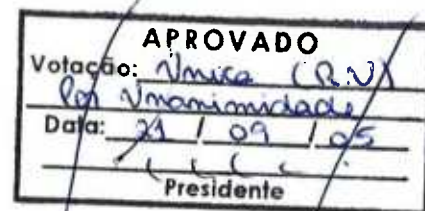 APROVADO
Votação: Única (R.V)
Por Unanimidade
Data: 21 / 09 / 05
Presidente